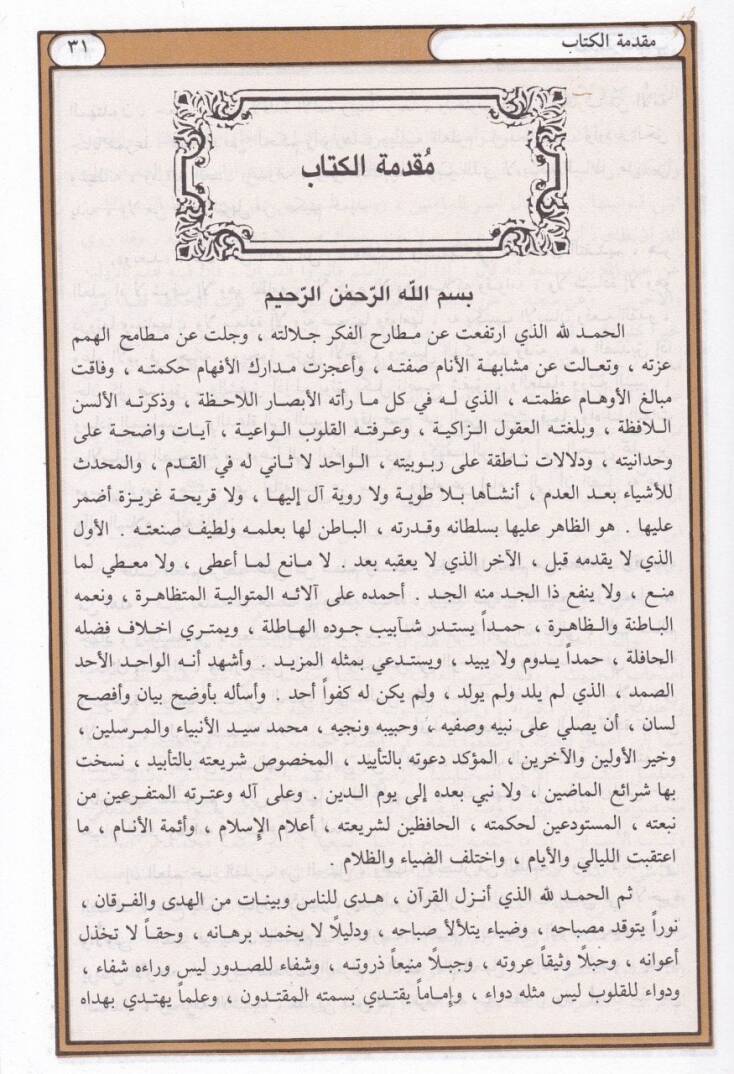 مقدمة الكتاب
٣١
مُقدمة الكتاب
بسم الله الرّحمٰن الرّحيم
الحمد لله الذي ارتفعت عن مطارح الفكر جلالته ، وجلت عن مطامح الهمم
عزته ، وتعالت عن مشابهة الأنام صفته ، وأعجزت مدارك الأفهام حكمته ، وفاقت
مبالغ الأوهام عظمته ، الذي له في كل ما رأته الأبصار اللاحظة ، وذكرته الألسن
اللافظة ، وبلغته العقول الزاكية ، وعرفته القلوب الواعية ، آيات واضحة على
وحدانيته ، ودلالات ناطقة على ربوبيته ، الواحد لا ثاني له في القدم ، والمحدث
للأشياء بعد العدم ، أنشأها بلا طوية ولا روية آل إليها ، ولا قريحة غريزة أضمر
عليها . هو الظاهر عليها بسلطانه وقدرته ، الباطن لها بعلمه ولطيف صنعته . الأول
الذي لا يقدمه قبل ، الآخر الذي لا يعقبه بعد . لا مانع لما أعطى ، ولا معطي لما
منع ، ولا ينفع ذا الجد منه الجد . أحمده على آلائه المتوالية المتظاهرة ، ونعمه
الباطنة والظاهرة ، حمداً يستدر شآبيب جوده الهاطلة ، ويمتري اخلاف فضله
الحافلة ، حمداً يدوم ولا يبيد ، ويستدعي بمثله المزيد . وأشهد أنه الواحد الأحد
الصمد ، الذي لم يلد ولم يولد ، ولم يكن له كفواً أحد . وأسأله بأوضح بيان وأفصح
لسان ، أن يصلي على نبيه وصفيه ، وحبيبه ونجيه ، محمد سيد الأنبياء والمرسلين ،
وخير الأولين والآخرين ، المؤكد دعوته بالتأييد ، المخصوص شريعته بالتأبيد ، نسخت
بها شرائع الماضين ، ولا نبي بعده إلى يوم الدين . وعلى آله وعترته المتفرعين من
نبعته ، المستودعين لحكمته ، الحافظين لشريعته ، أعلام الإسلام ، وأئمة الأنام ، ما
اعتقبت الليالي والأيام ، واختلف الضياء والظلام .
ثم الحمد لله الذي أنزل القرآن ، هدى للناس وبينات من الهدى والفرقان ،
نوراً يتوقد مصباحه ، وضياء يتلألأ صباحه ، ودليلاً لا يخمد برهانه ، وحقاً لا تخذل
أعوانه ، وحبلاً وثيقاً عروته ، وجبلاً منيعاً ذروته ، وشفاء للصدور ليس وراءه شفاء ،
ودواء للقلوب ليس مثله دواء ، وإماماً يقتدي بسمته المقتدون ، وعلماً يهتدي بهداه